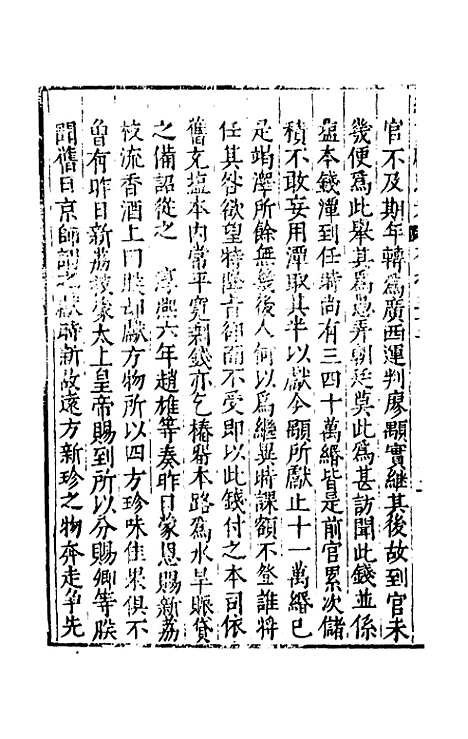 官不及期年轉爲廣西運判廖顒實繼其後故到官未
幾便爲此舉其爲愚弄朝廷莫此爲甚訪聞此錢並係
鹽本錢潭到任時尚有三四十萬緡皆是前官累次儲
積不敢妄用潭取其半以獻今顒所獻止十一萬緡已
是竭澤所餘無幾後人何以爲繼異時課額不登誰將
任其咎欲望特降旨卻而不受即以此錢付之本司依
舊充塩本内常平寛剰錢亦乞樁留本路爲水旱賑貸
之備詔從之 淳熙六年趙雄等奏昨日蒙恩賜新荔
枝流香酒上曰朕却獻方物所以四方珍味佳果俱不
曾有昨日新荔枝蒙太上皇帝賜到所以分賜卿等朕
聞舊日京師謂之獻時新故遠方新珍之物奔走争先